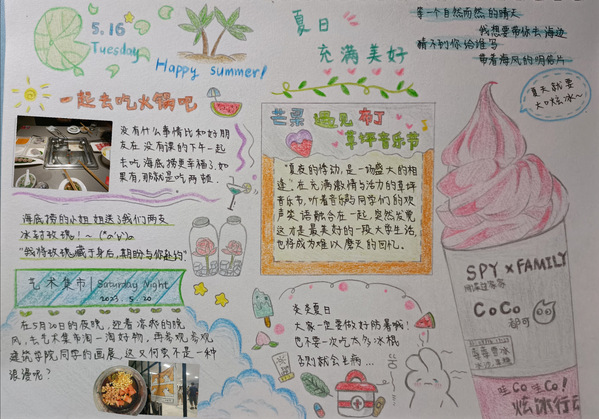 5.16
Tuesday
Happy summer!
夏日
充满美好
等一个自然而然的晴天
我想要带你去海边
猜不到你给谁写
带着海风的明信片
一起去吃火锅吧
没有什么事情比和好朋
友在没有课的下午一起
去吃海底捞更幸福了.如
果有,那就是吃两顿.
海底捞的小姐姐送给我们两支
冰封玫瑰!~
"我将玫瑰藏于身后,期盼与你赴约"
艺术集市 | Saturday Night
2023. 5. 20
在5月20日的夜晚,迎着凉爽的晚
风,去艺术集市淘一淘好物,再参观参观
建筑学院同学的画展,这又何尝不是一种
浪漫呢?
芒果 遇见 布丁
草坪音乐节
"夏夜的悸动,是一场盛大的相
逢".在充满激情与活力的草坪
音乐节,听着音乐与同学们的欢
声笑语融合在一起,突然发觉
这才是最美好的一段大学生活,
也将成为难以磨灭的回忆.
炎炎夏日
大家一定要做好防暑喊!
也不要一次吃太多冰棍
否则就会生病...
夏天就要
大口炫冰~
SPY × FAMILY
CoCo
都可
哇Co!哇Co!
炫冰行动